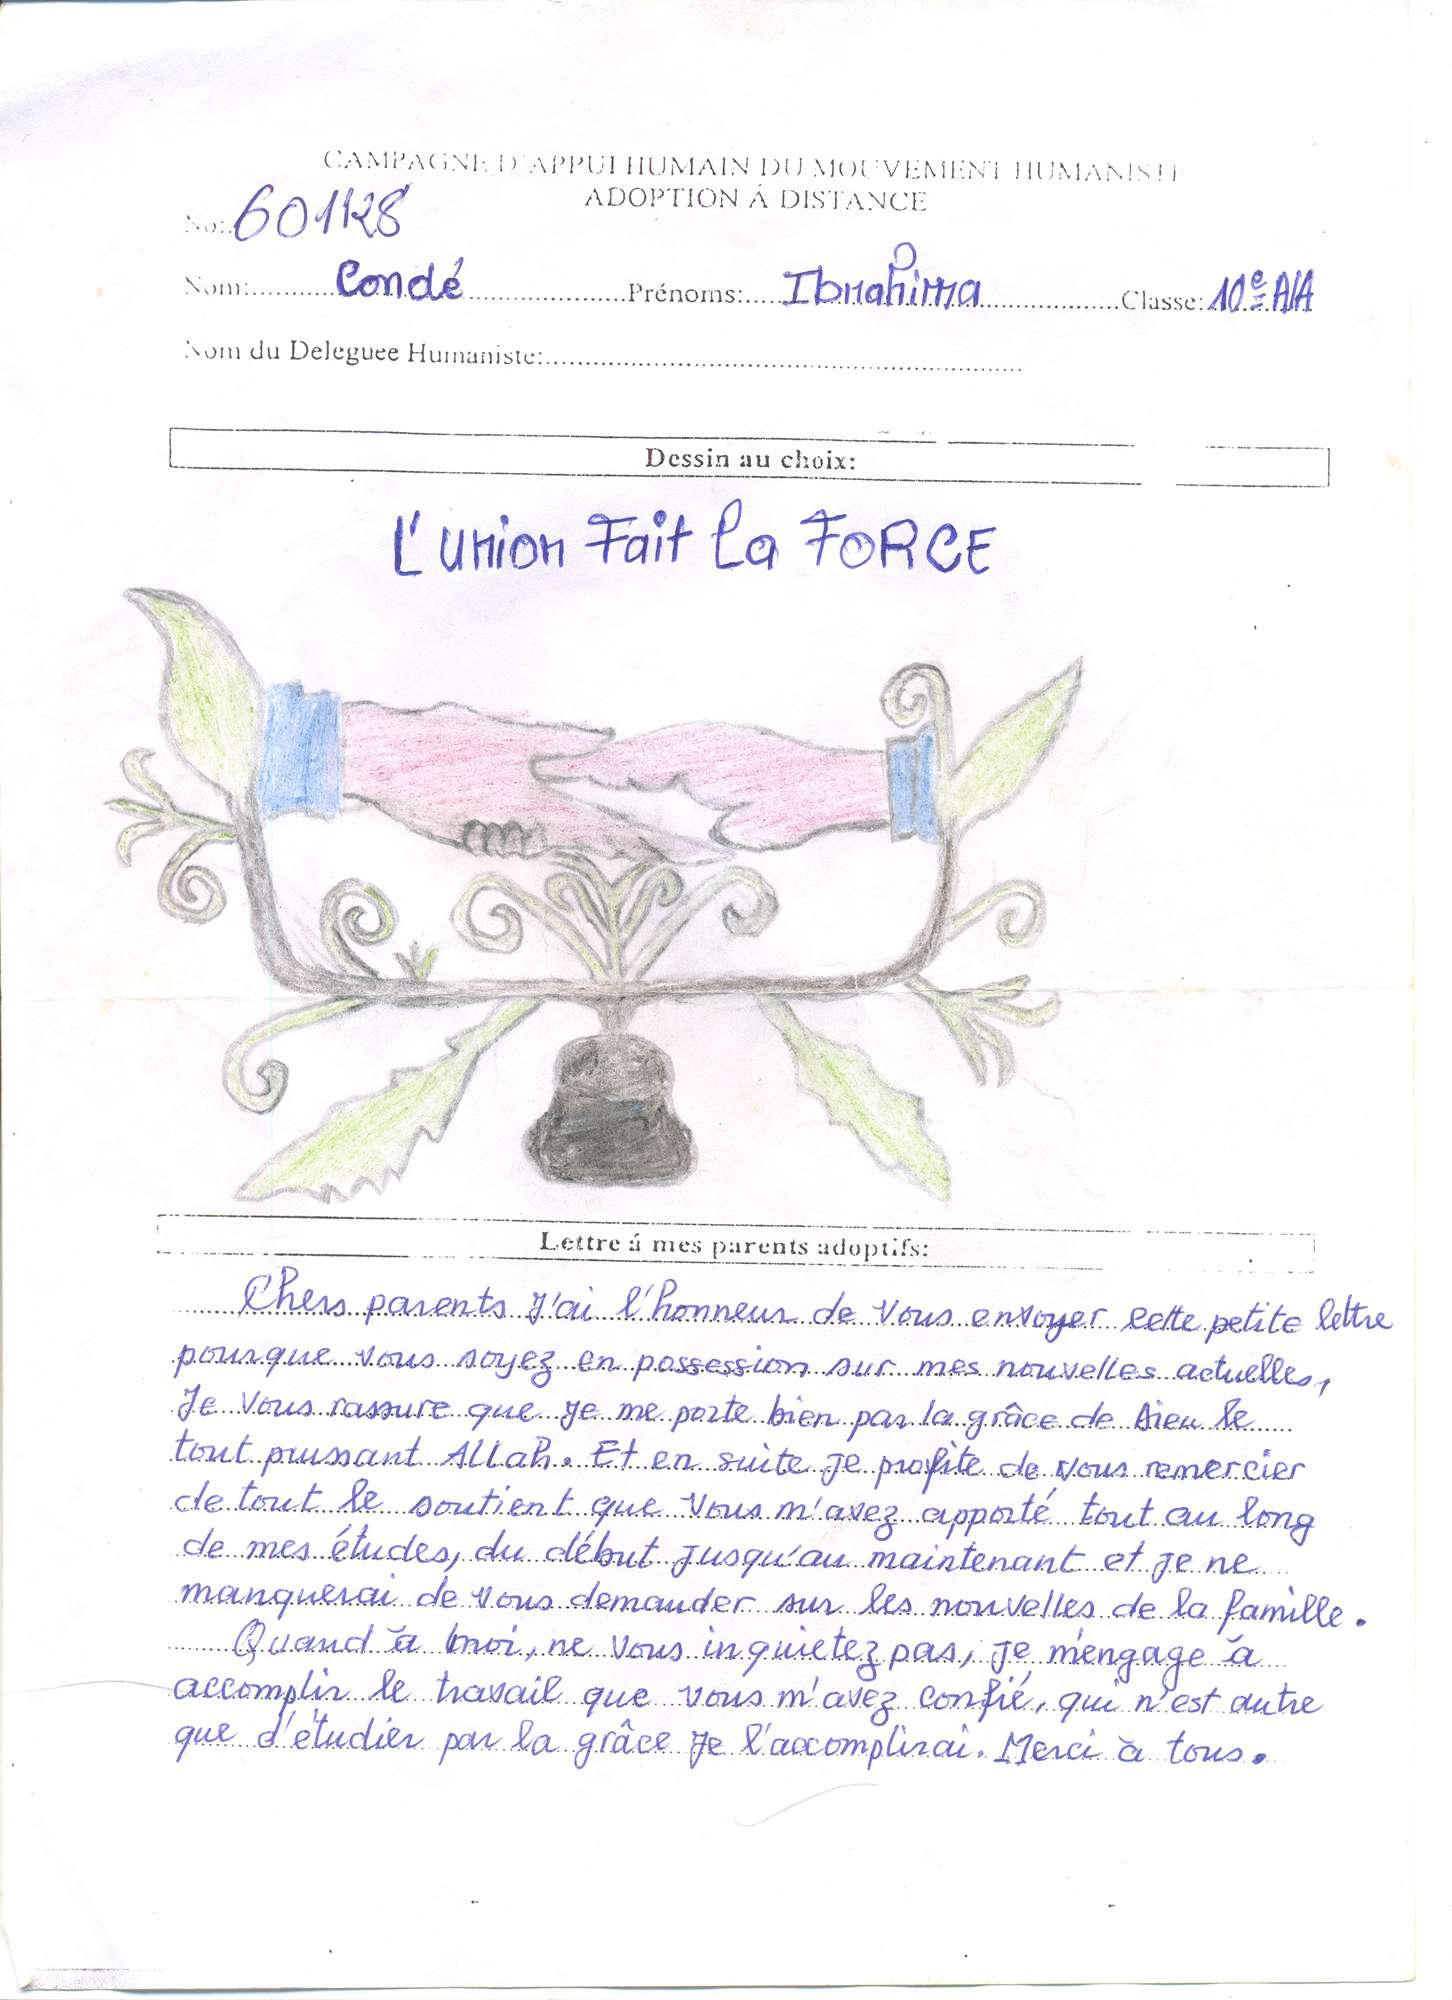 CAMPAGNE D'APPUI HUMAIN DU MOUVEMENT HUMANISTE
ADOPTION Á DISTANCE
No:
Nom: Condé Prénoms: Ibrahima Classe: 10e A/A
Nom du Deleguee Humaniste:
Dessin au choix:
L'union Fait la FORCE
Lettre á mes parents adoptifs:
Chers parents J'ai l'honneur de vous envoyer cette petite lettre
pourque vous soyez en possession sur mes nouvelles actuelles,
Je vous rassure que je me porte bien par la grâce de Dieu le
tout puissant Allah. Et en suite je profite de vous remercier
de tout le soutient que vous m'avez apporté tout au long
de mes études, du début jusqu'au maintenant et je ne
manquerai de vous demander sur les nouvelles de la famille.
Quand à moi, ne vous inquietez pas, je m'engage à
accomplir le travail que vous m'avez confié, qui n'est autre
que d'étudier par la grâce je l'accomplirai. Merci à tous.